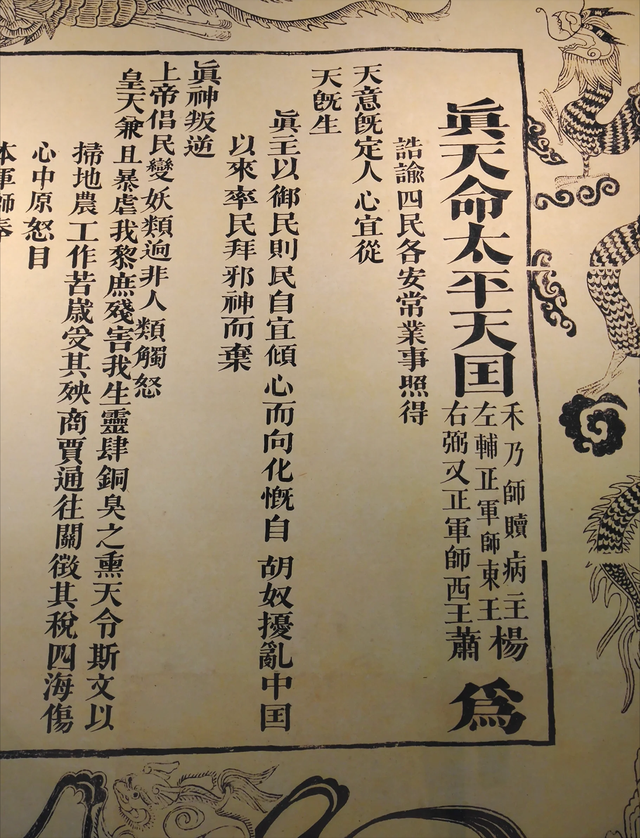 眞天命太平天囯
禾乃師贖病主
左輔正軍師東王楊
右弼又正軍師西王蕭
爲
誥諭四民各安常業事照得
天意旣定人心宜從
天旣生
眞主以御民則民自宜傾心而向化慨自 胡奴擾亂中囯
以來率民拜邪神而棄
眞神叛逆
上帝倡民變妖類逈非人類觸怒
皇天兼且暴虐我黎庶殘害我生靈肆銅臭之熏天令斯文以
掃地農工作苦歲受其殃商賈通往關徵其稅四海傷
心中原怒目
本軍師奉